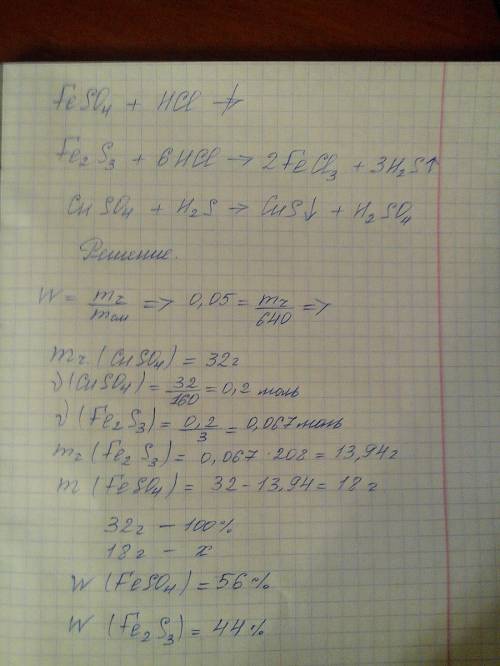 FeSO₄ + HCl ↛
Fe₂S₃ + 6HCl → 2FeCl₃ + 3H₂S↑
CuSO₄ + H₂S → CuS↓ + H₂SO₄
Решение.
W = mг/mсм => 0,05 = mг/640 =>
mг (CuSO₄) = 32г
ν(CuSO₄) = 32/160 = 0,2 моль
ν(Fe₂S₃) = 0,2/3 = 0,067 моль
mг (Fe₂S₃) = 0,067 · 208 = 13,94г
m (FeSO₄) = 32 - 13,94 = 18 г
32г - 100%
18г - x
W (FeSO₄) = 56%
W (Fe₂S₃) = 44%